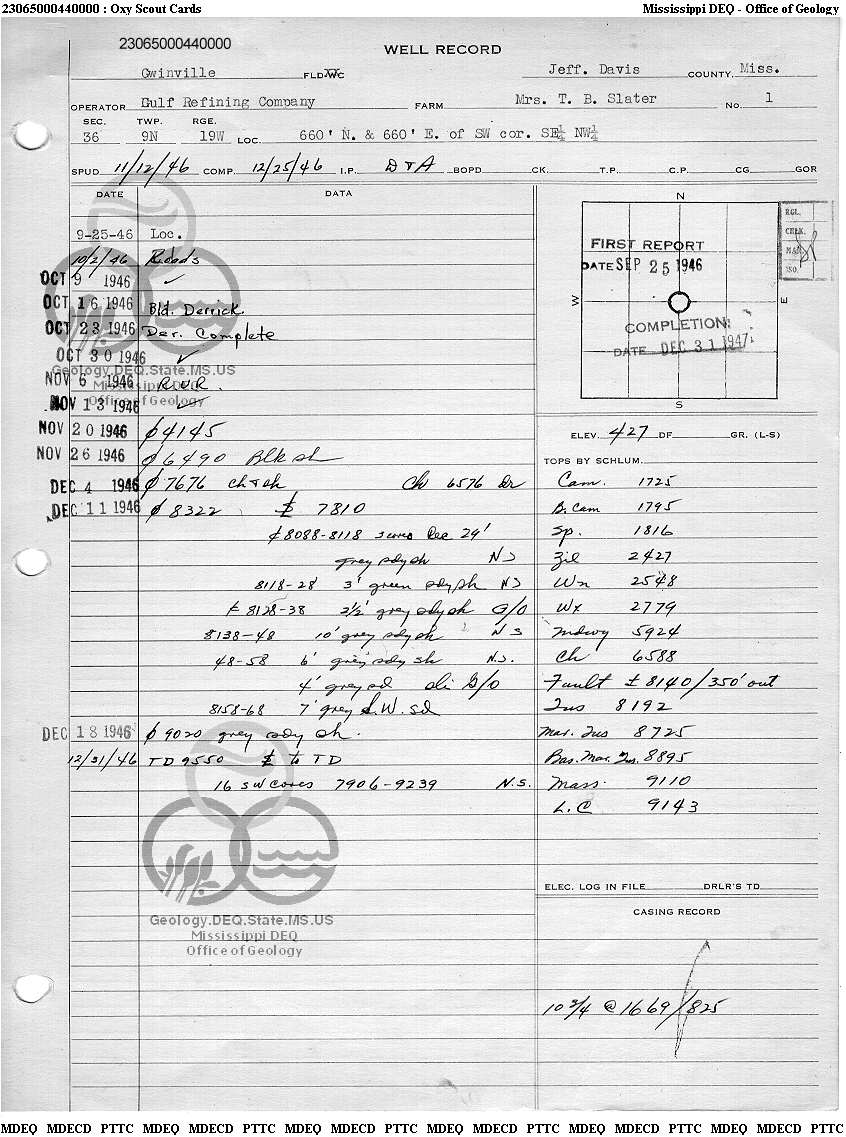 23065000440000 : Oxy Scout Cards Mississippi DEQ - Office of Geology
23065000440000
WELL RECORD
Gwinville FLD WC Jeff. Davis COUNTY, Miss.
OPERATOR Gulf Refining Company FARM Mrs. T. B. Slater NO. 1
SEC. TWP. RGE.
36 9N 19W LOC. 660' N. & 660' E. of SW cor. SE¼ NW¼
SPUD 11/12/46 COMP. 12/25/46 I.P. D+A BOPD CK. T.P. C.P. CG GOR
DATE DATA
9-25-46 Loc.
10/2/46 Roads
OCT 9 1946 ✓
OCT 16 1946 Bld. Derrick
OCT 23 1946 Der. Complete
OCT 30 1946 ✓
Geology.DEQ.State.MS.US
NOV 6 1946 R.U.R.
Mississippi DEQ
Office of Geology
NOV 13 1946 ✓
NOV 20 1946 ϕ 4145
NOV 26 1946 ϕ 6490 Blk sh
DEC 4 1946 ϕ 7676 ch & sh Ch 6576 Dr
DEC 11 1946 ϕ 8322 7810
8088-8118 Rec 29'
grey sdy sh NS
8118-28 3' green sdy sh NS
8128-38 2½' grey sdy sh G/O
8138-48 10' grey sdy sh NS
48-58 6' grey sdy sh N.S.
4' grey sd G/O
8158-68 7' grey S.W. sd
DEC 18 1946 ϕ 9020 grey sdy sh.
12/31/46 TD 9550 to TD
16 SW cores 7906-9239 N.S.
Geology.DEQ.State.MS.US
Mississippi DEQ
Office of Geology
N
RGL.
CHLK.
MAP
ISO.
FIRST REPORT
DATE SEP 25 1946
W E
COMPLETION:
DATE DEC 31 1947
S
ELEV. 427 DF GR. (L-S)
TOPS BY SCHLUM.
Cam. 1725
B. Cam 1795
Sp. 1816
Zil 2427
Wn 2548
Wx 2779
Mdwy 5924
Ch 6588
Fault ± 8140/350' out
Tus 8192
Mar. Tus 8725
Bas. Mar. Tus. 8895
Mass. 9110
L.C 9143
ELEC. LOG IN FILE DRLR'S TD
CASING RECORD
10 3/4 @ 1669/825
MDEQ MDECD PTTC MDEQ MDECD PTTC MDEQ MDECD PTTC MDEQ MDECD PTTC MDEQ MDECD PTTC MDEQ MDECD PTTC